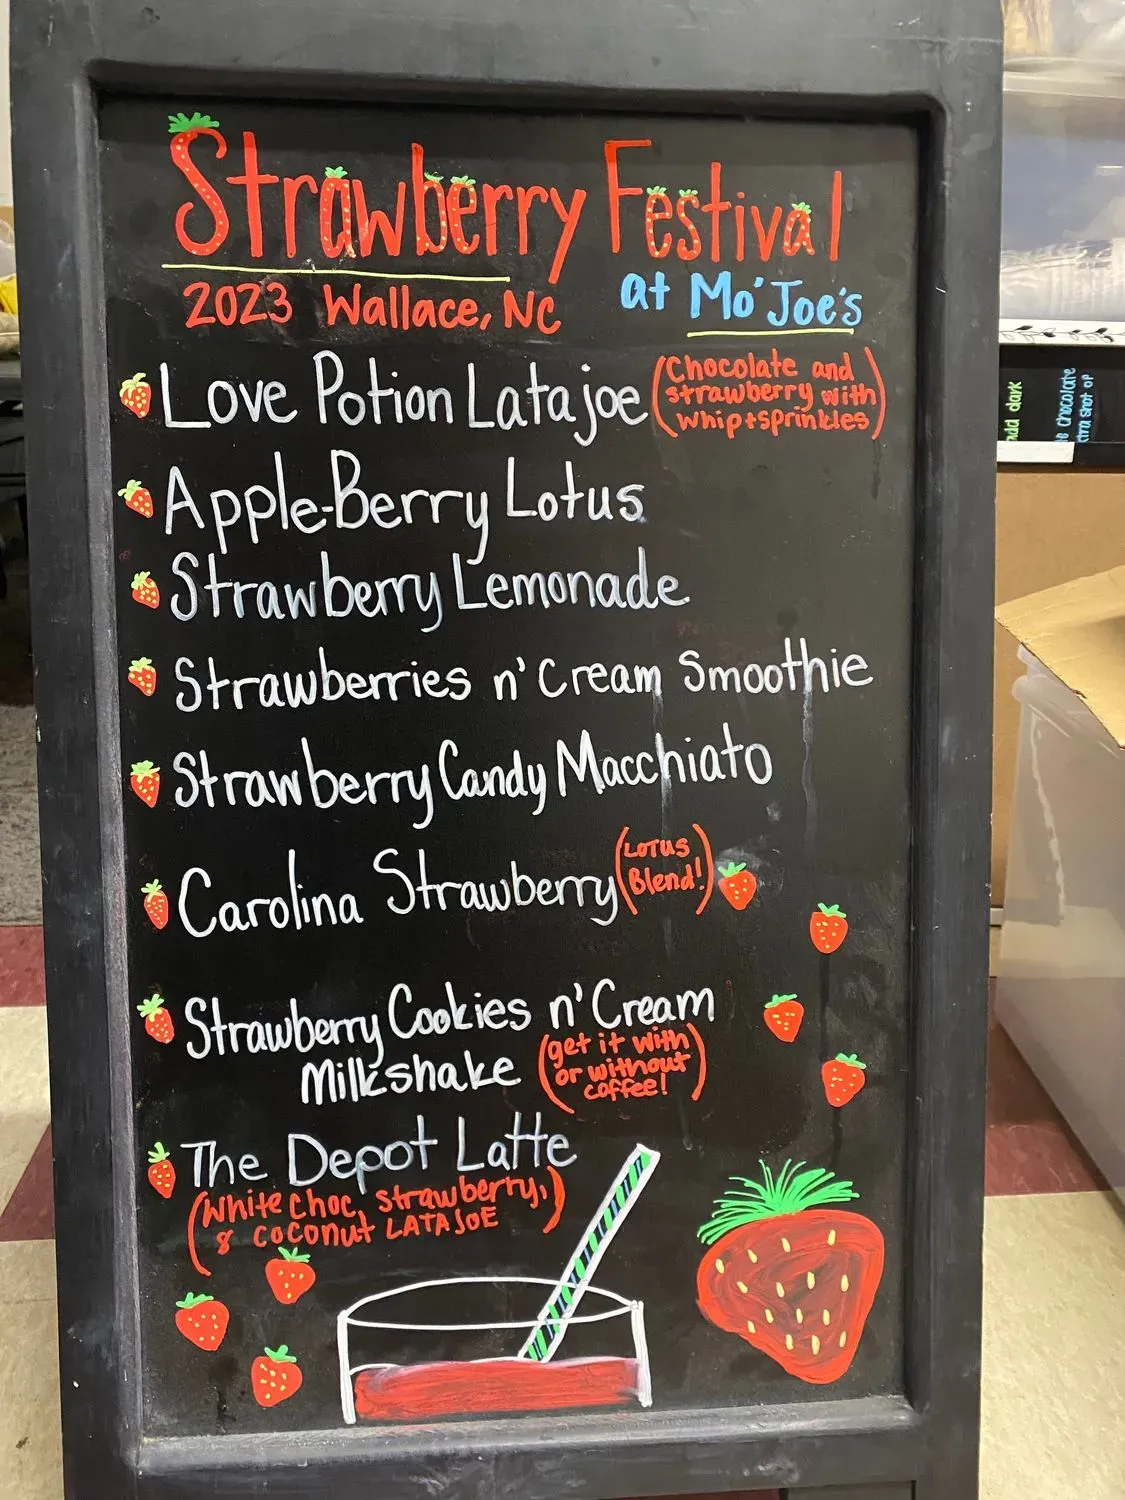 Strawberry Festival
2023 Wallace, NC at Mo'Joe's
Love Potion Latajoe (Chocolate and
strawberry with
whip+sprinkles)
Apple-Berry Lotus
Strawberry Lemonade
Strawberries n' Cream Smoothie
Strawberry Candy Macchiato
Carolina Strawberry (Lotus
Blend!)
Strawberry Cookies n' Cream
Milkshake (get it with
or without
coffee!)
The Depot Latte
(White Choc, strawberry,
& coconut LATAJOE)
dark
Chocolate
shot of